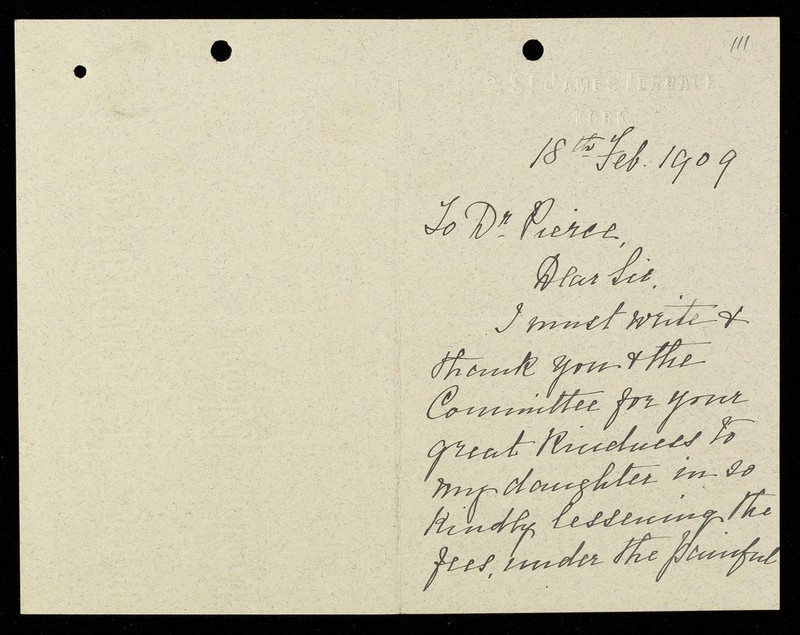 111
ST JAMES TERRACE
YORK
18th Feb. 1909
To Dr. Pierce,
Dear Sir,
I must write &
thank you & the
Committee for your
great kindness to
my daughter in so
kindly lessening the
fees, under the painful